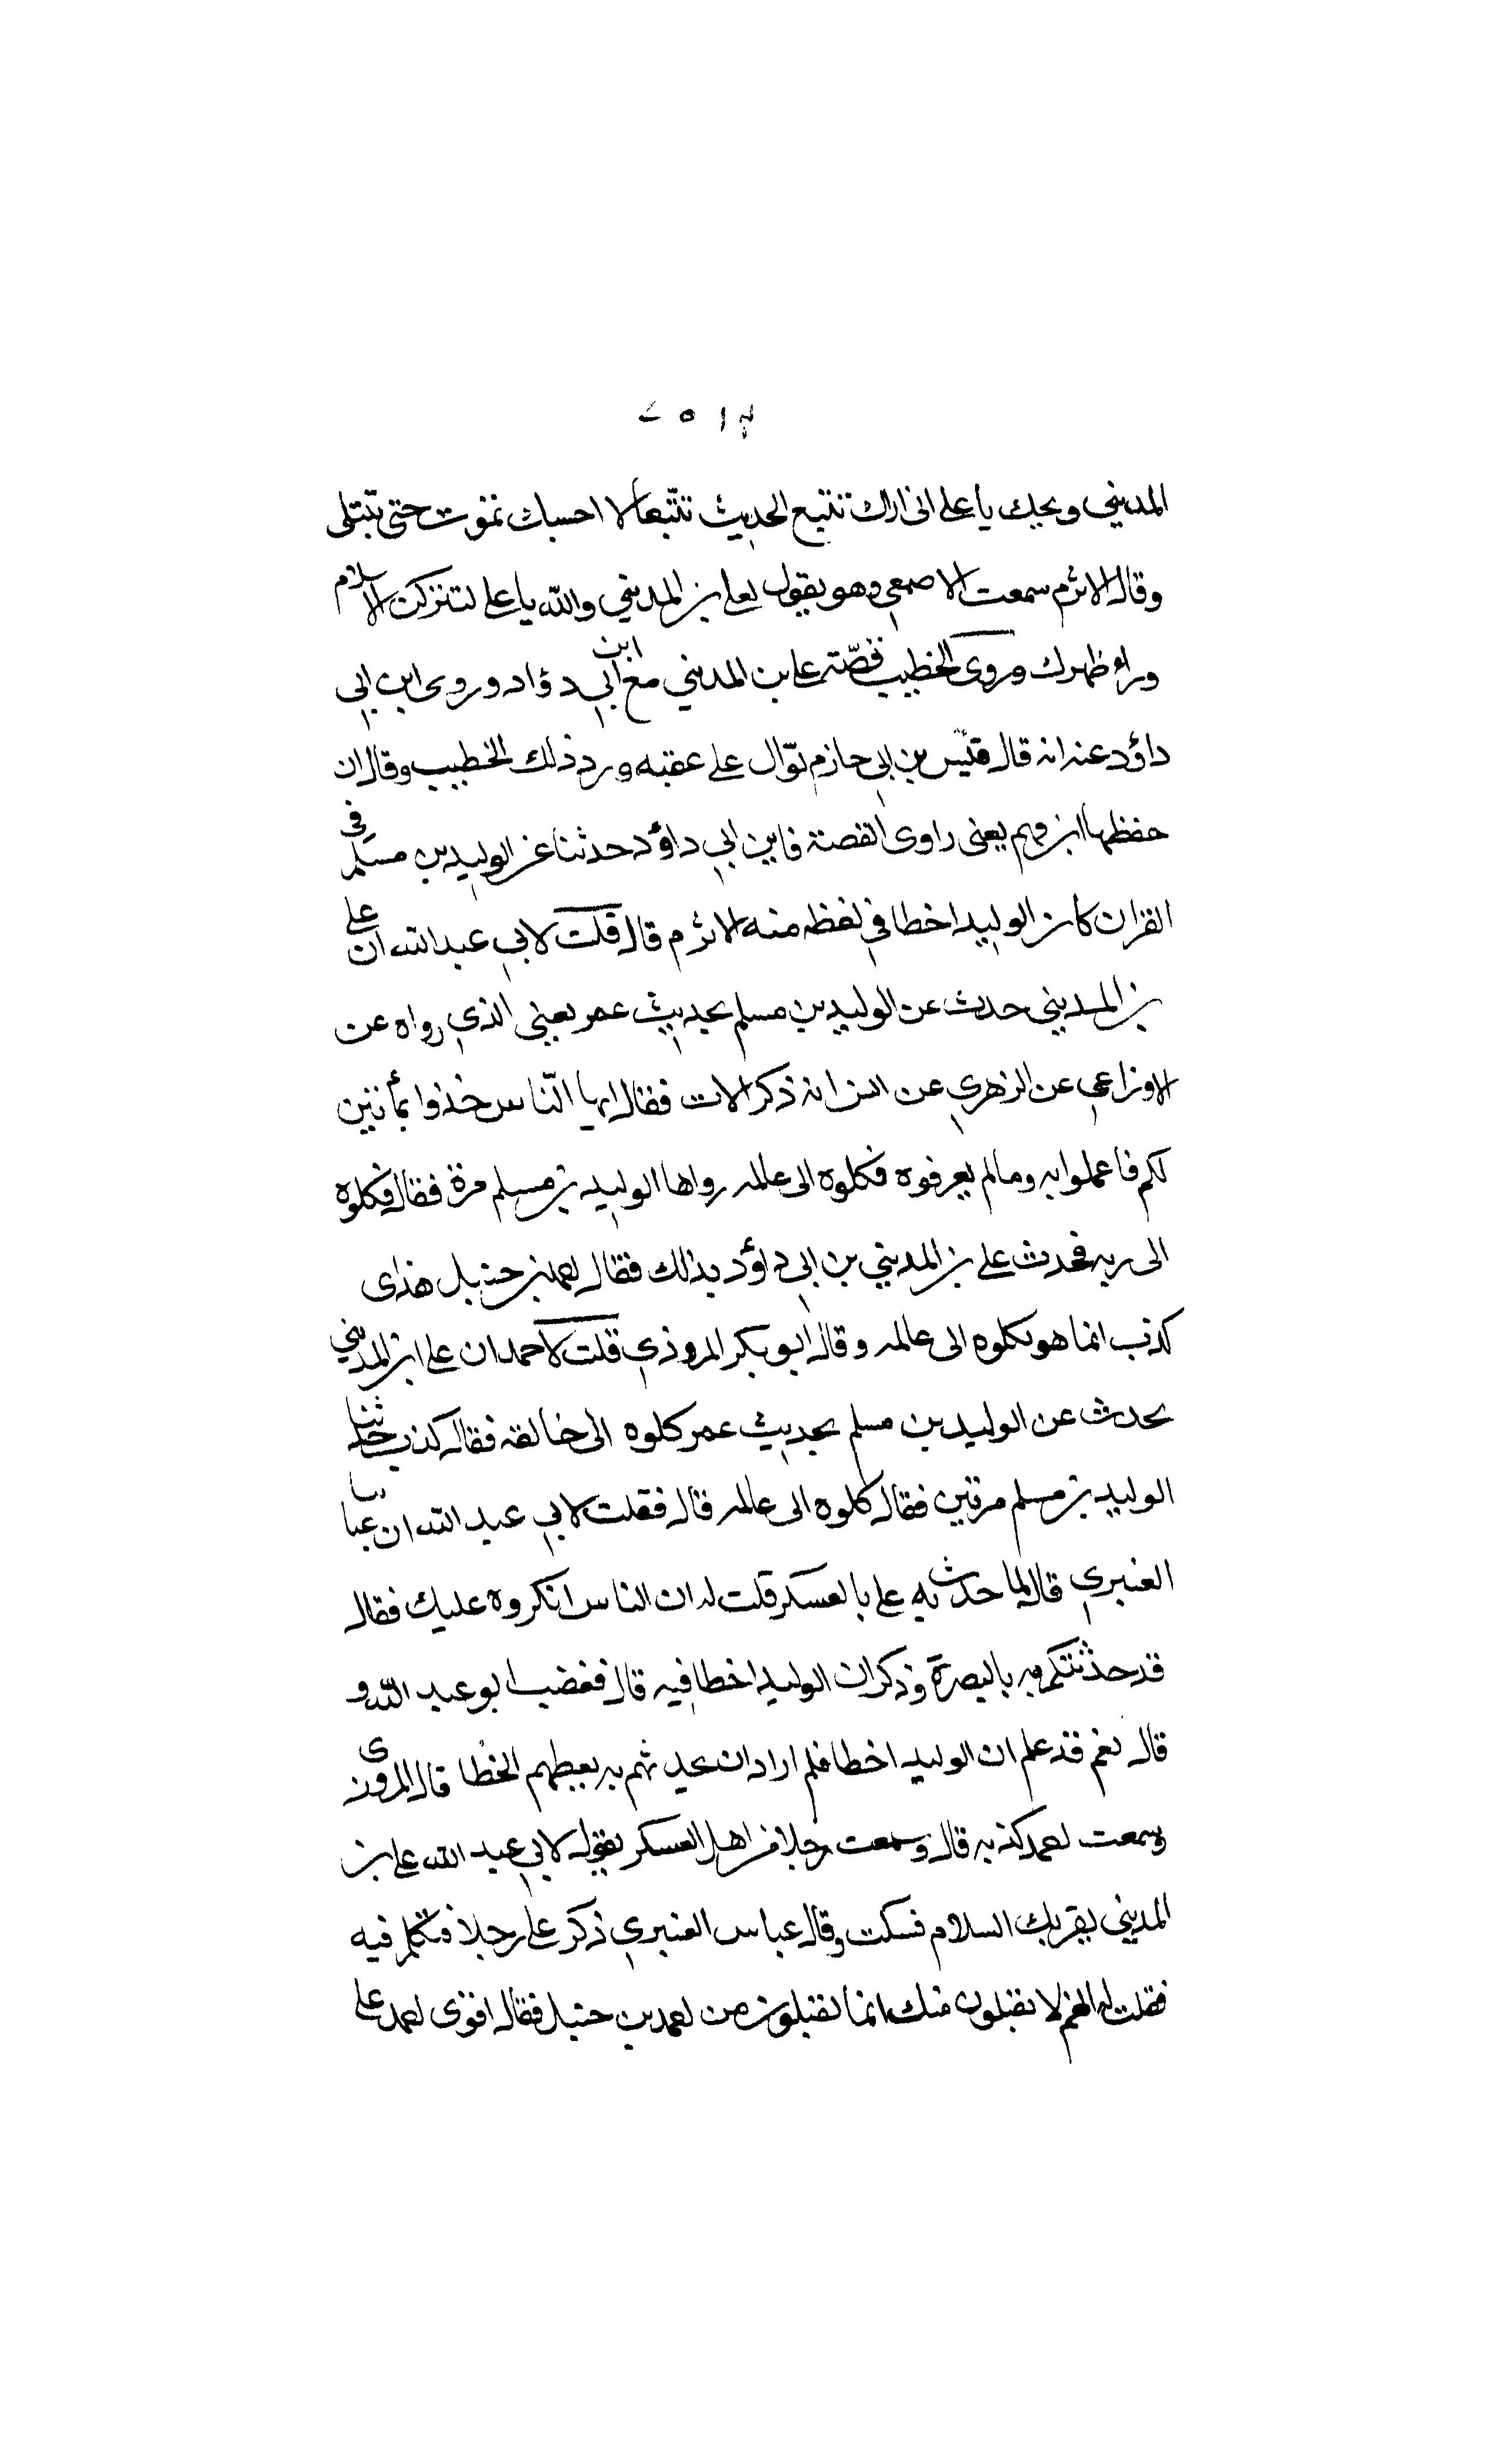 المديني ويحك يا علي اني اراك تتتبع الحديث تتبعا لا احسبك تموت حتى تبتلى
وقال الاثرم سمعت الاصمعي وهو يقول لعلي بن المديني والله يا علي لتتركن الاسلام
وراء ظهرك وروى الخطيب قصّته علي بن المديني مع ابن ابي دؤاد وروى ابن ابي
داؤد عنه انه قال قيس بن ابي حازم بوّال على عقبه ورد ذلك الخطيب وقال ان
حفظها ابن فهم يعني راوي القصة فابن ابي داؤد حدثنا عن الوليد بن مسلم في
القران كان الوليد اخطا في لفظه منه الاثرم قال قلت لابي عبد الله ان علي
بن المديني حدث عن الوليد بن مسلم بحديث عمر يعني الذي رواه عن
الاوزاعي عن الزهري عن انس انه ذكر الاب فقال ايها النّاس خذوا بما تبين
لكم فاعملوا به وما لم يعرفوه فكلوه الى عالمه رواها الوليد بن مسلم مرة فقال فكلوه
الى ربه فحدث علي بن المديني بن ابي داؤد بذلك فقال احمد بن حنبل هذاى
كذب انما هو بكلوه الى عالمه وقال ابو بكر المروذي قلت لاحمد ان علي ابن المديني
يحدث عن الوليد بن مسلم بحديث عمر كلوه الى خالقه فقال كذب حدثنا
الوليد بن مسلم مرتين فقال كلوه الى عالمه قال فقلت لابي عبد الله ان عباسا
العنبري قال لما حدث به علي بالعسكر قلت له ان الناس انكروه عليك فقال
قد حدثتكم به بالبصرة وذكر ان الوليد اخطا فيه قال فغضب ابو عبد الله و
قال نعم قد علم ان الوليد اخطا فلم اراد ان يحدثهم به يعطيهم الخطا قال المروزى
وسمعت احمد كذبه قال وسمعت رجلا من اهل العسكر يقول لابي عبد الله علي بن
المديني يقريك السلام فسكت وقال عباس العنبري ذكر علي رجلا فتكلم فيه
فقلت له انهم لا يقبلون منك انما يقبلون من احمد بن حنبل فقال اقوى احمد على